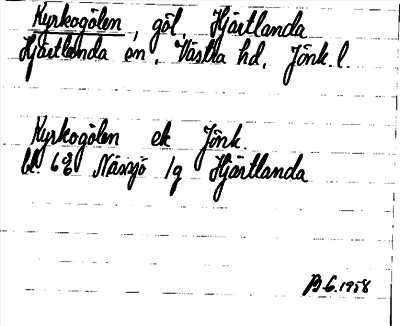 Kyrkogölen, göl, Hjärtlanda
Hjärtlanda sn. Västra hd. Jönk. l.
Kyrkogölen ek Jönk.
bl. 6E Nässjö 1g Hjärtlanda
B-G. 1958